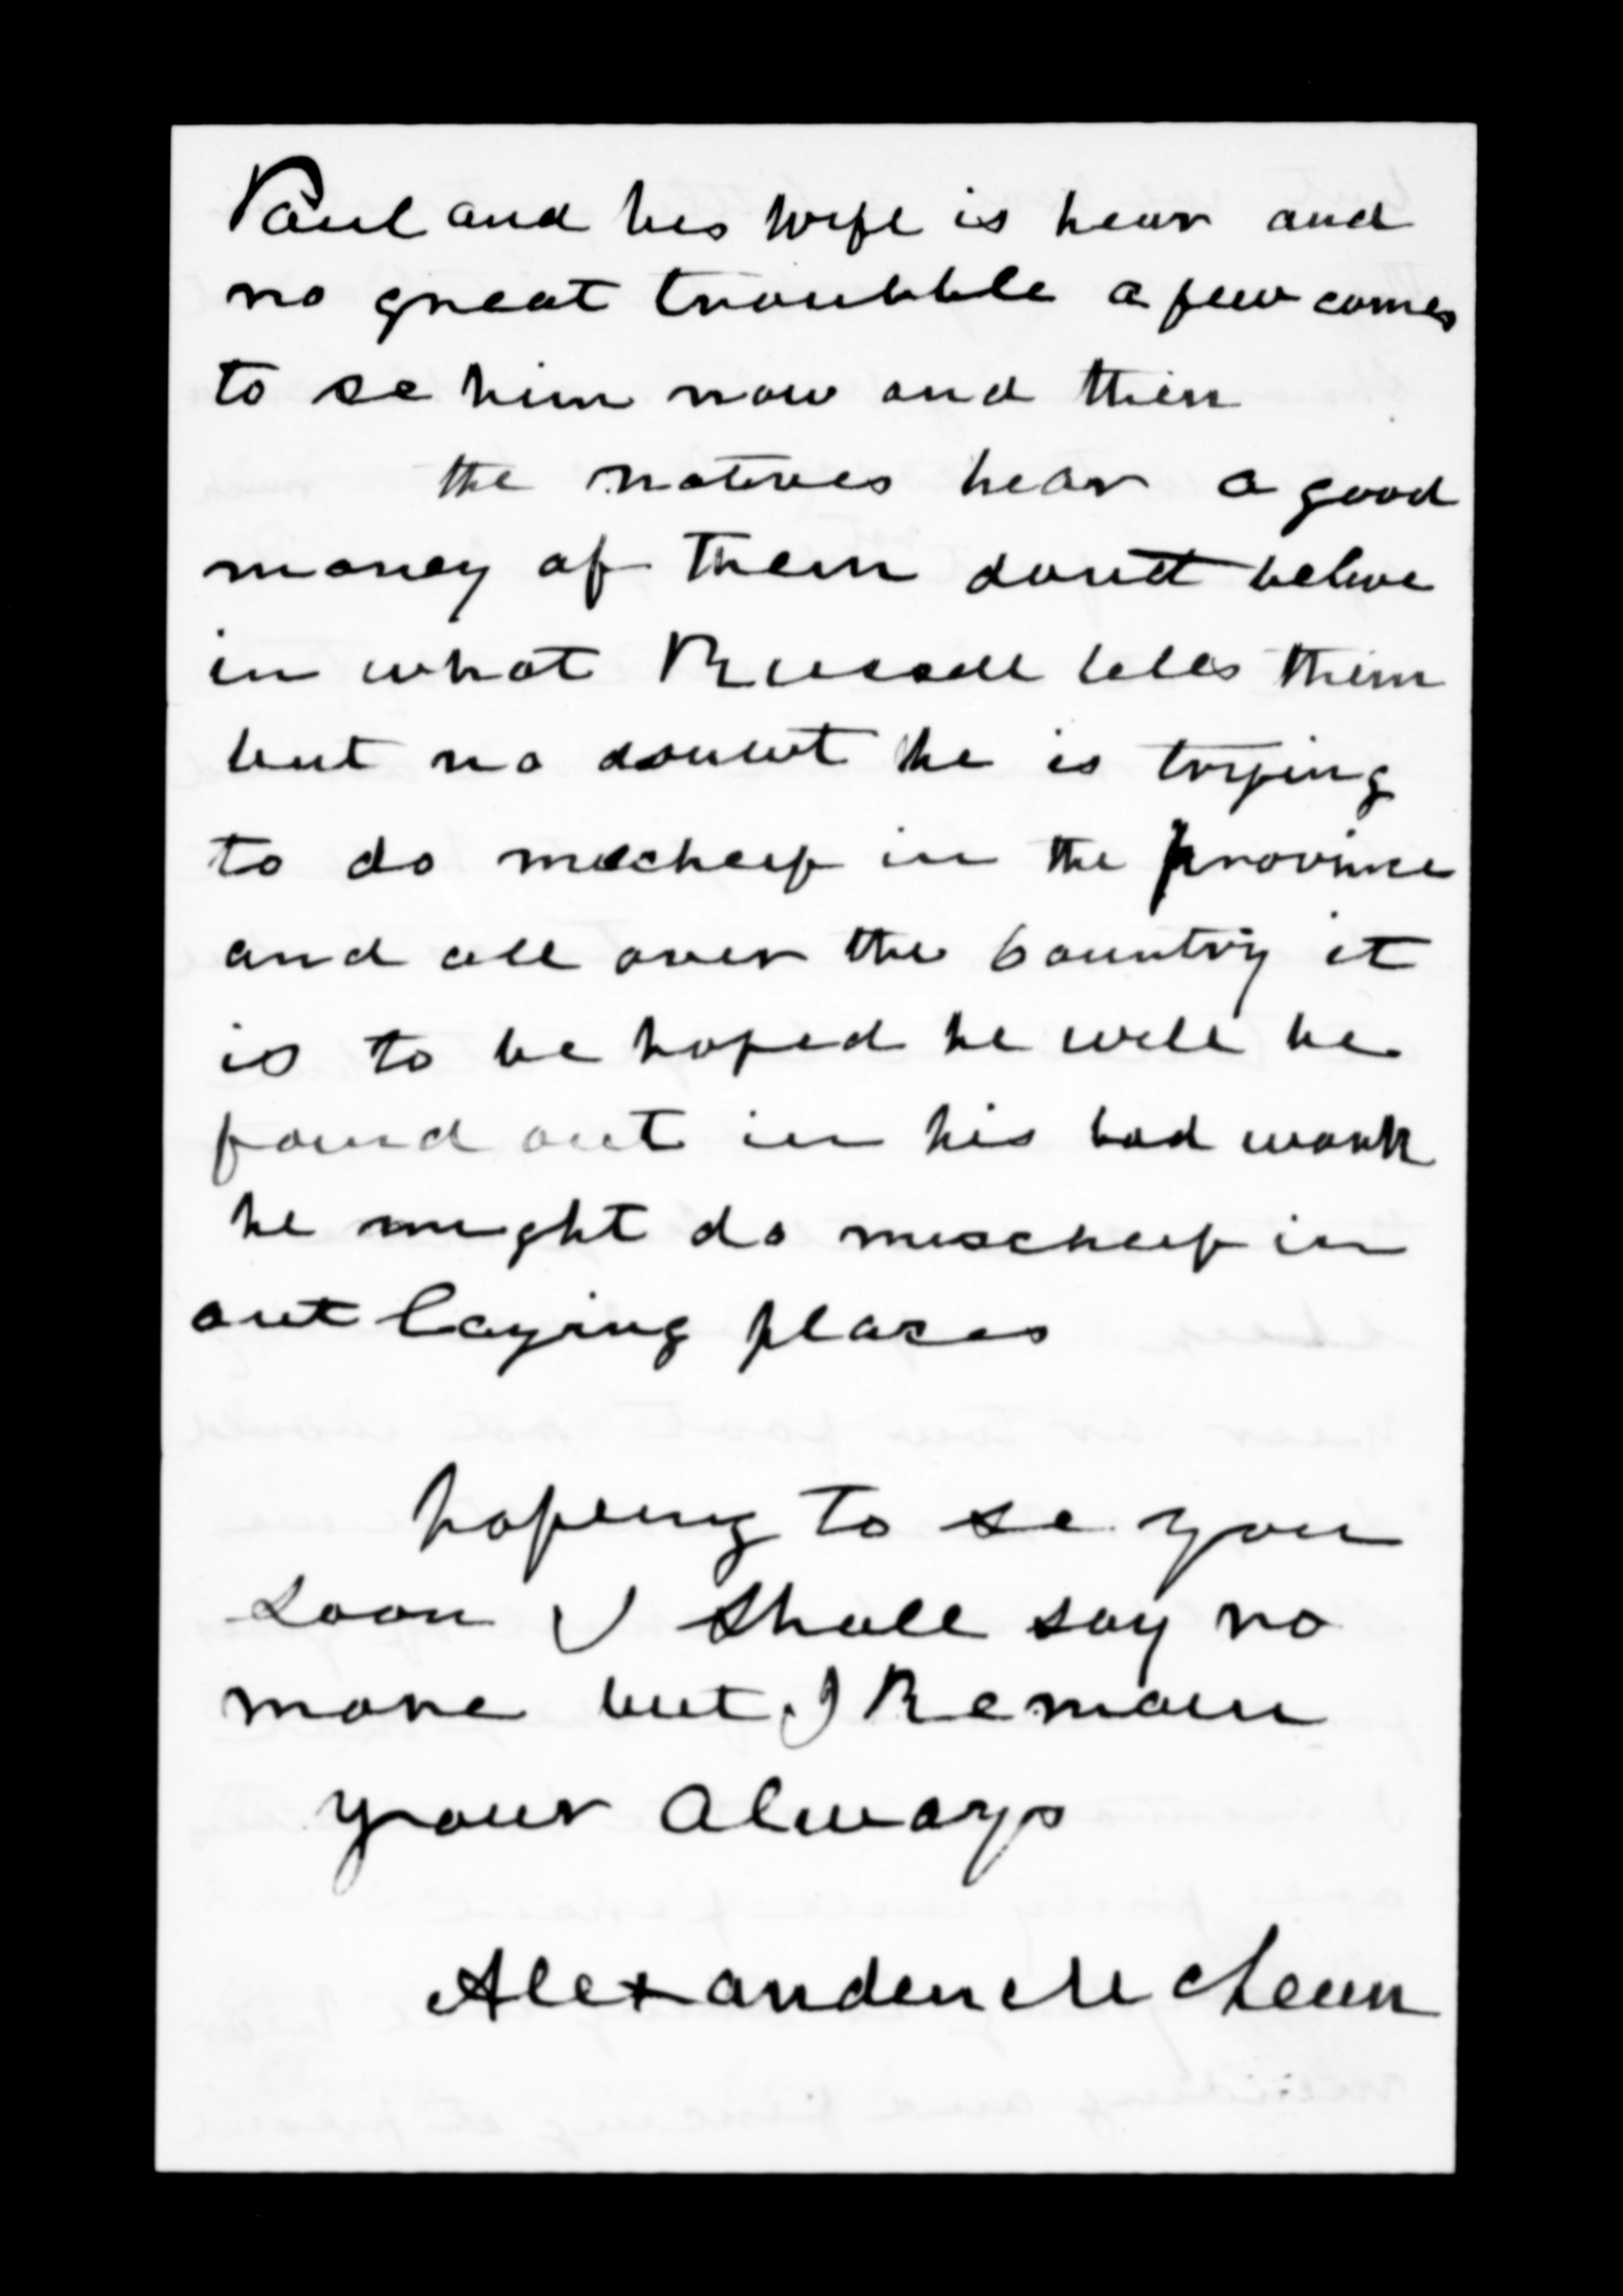 Paul and his wife is hear and
no great troubble a few comes
to se him now and then
the natives hear a good
money of them dount belive
in what Russell tells them
but no doubt he is trying
to do mischeef in the province
and all over the Country it
is to be hoped he will be
found out in his bad work
he might do mischeef in
out laying plases
hopeing to se you
soon I Shall say no
more but I Remain
your Always
Alexander McLean